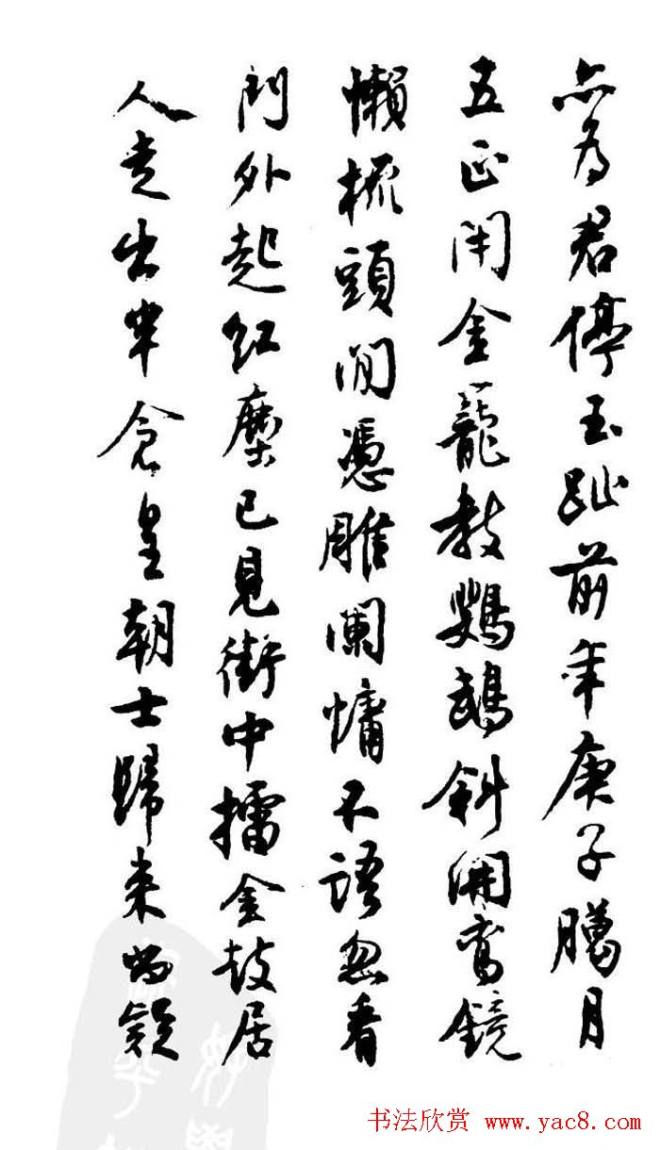 亦為君停玉趾前年庚子臈月
五正閉金籠教鸚鵡斜開鸞鏡
懶梳頭閒憑雕闌慵不語忽看
門外起紅塵已見街中擂金鼓居
人走出半倉皇朝士歸來尚疑
书法欣赏 www.yac8.com